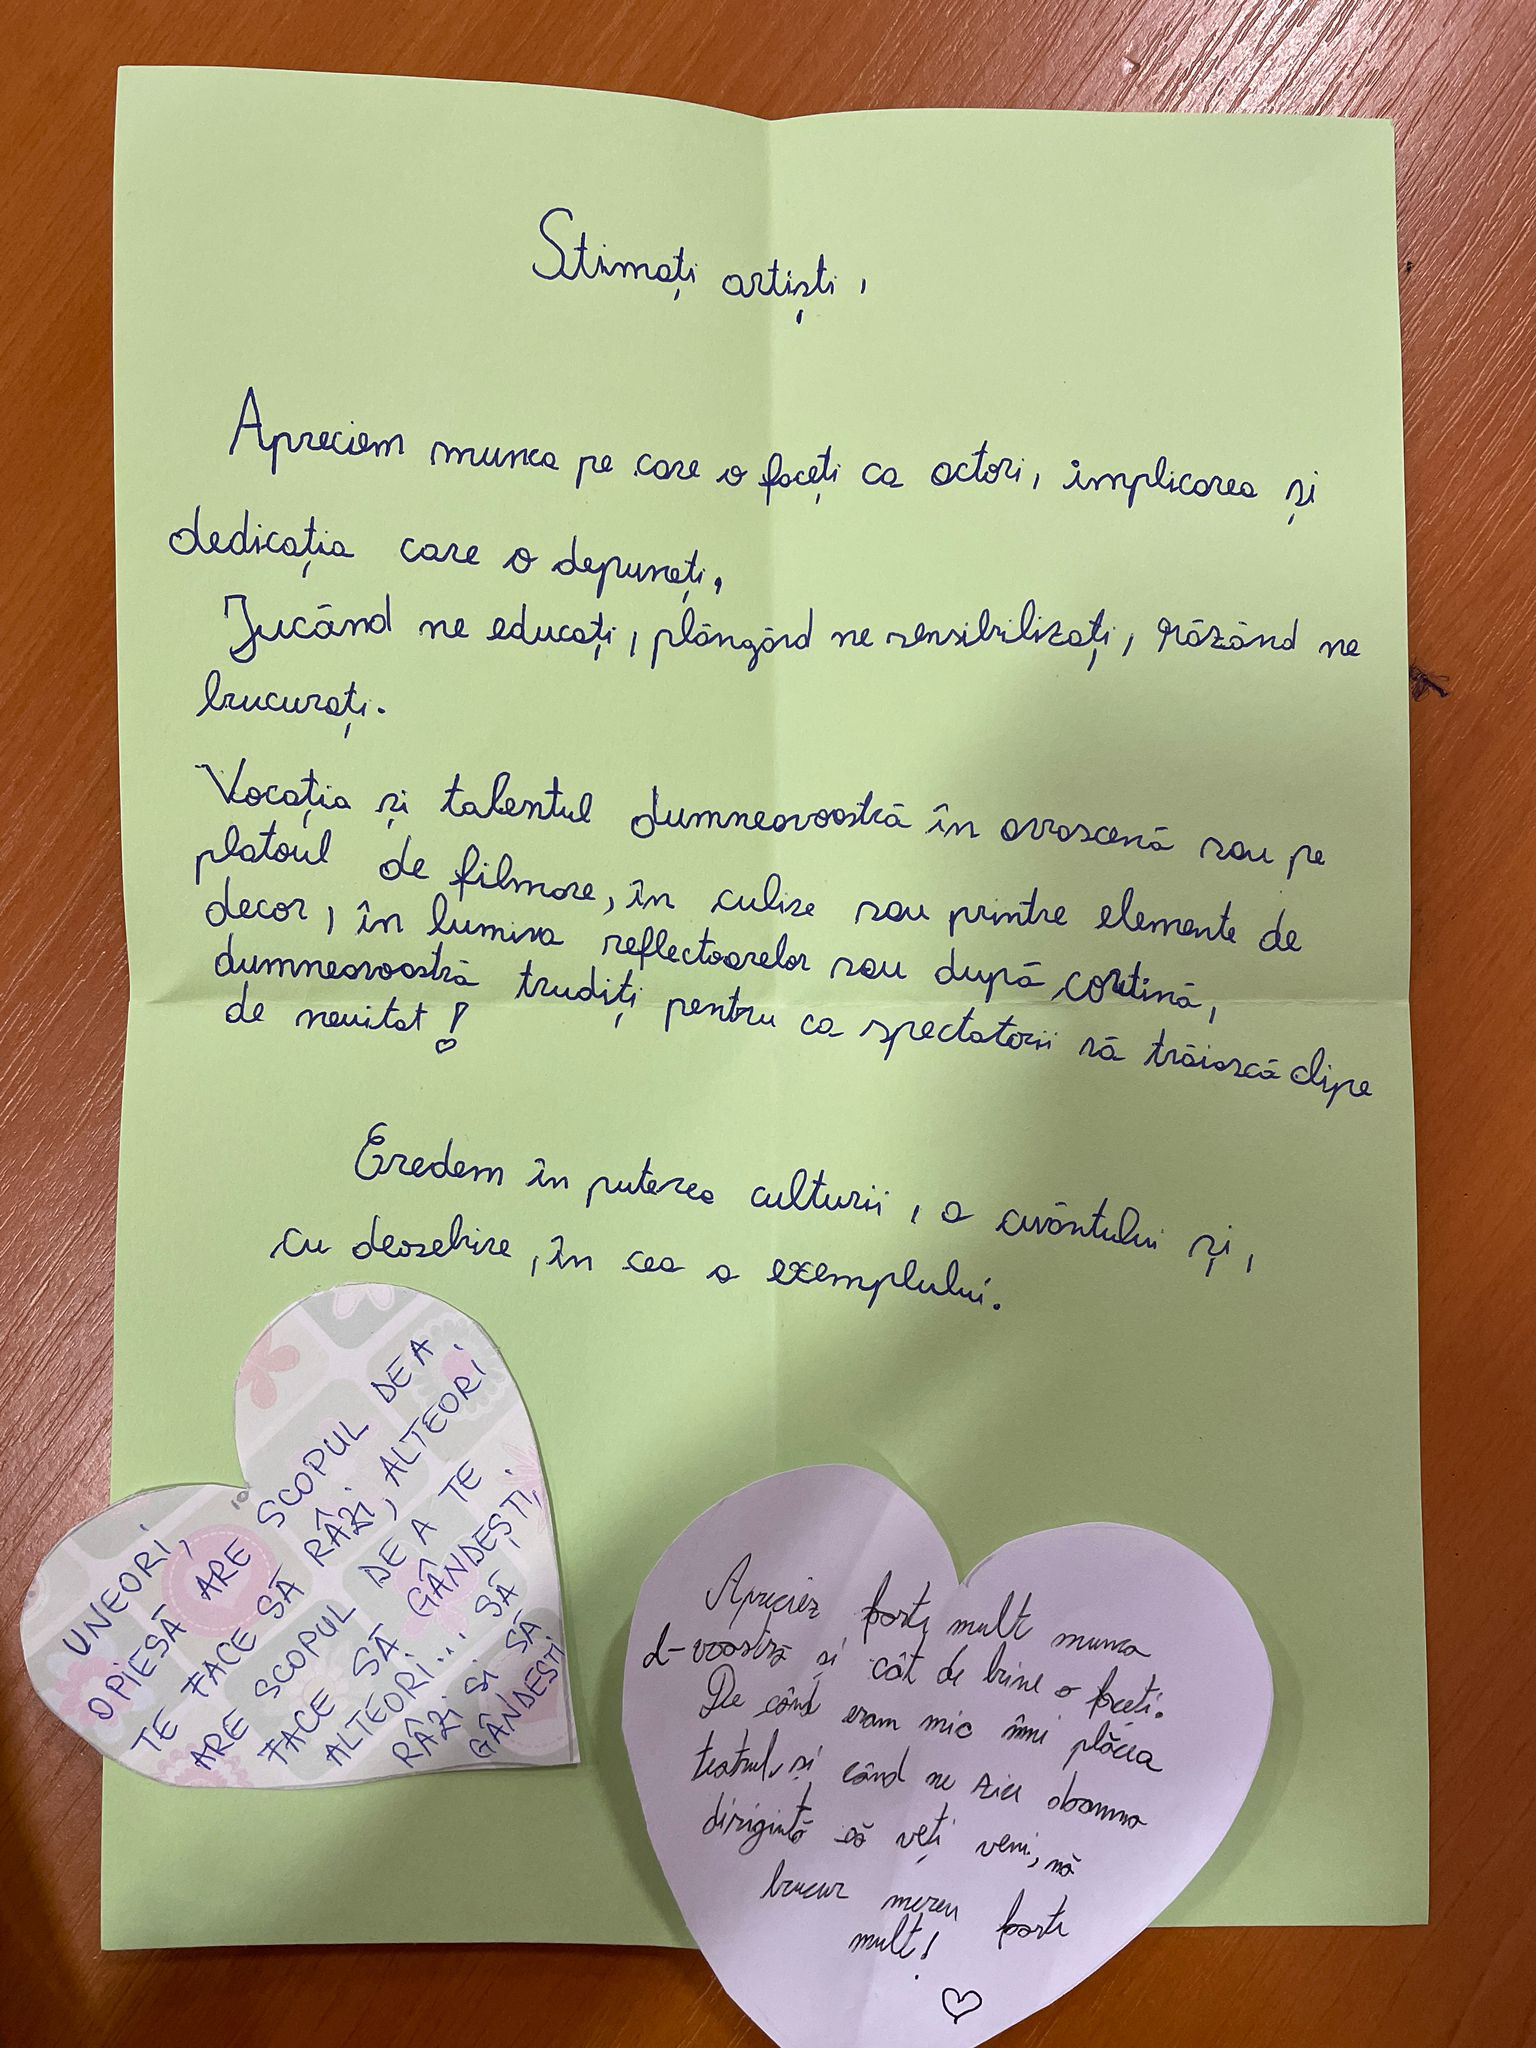 Stimați artiști,
Apreciem munca pe care o faceți ca actori, implicarea și
dedicația care o depuneți.
Jucând ne educați, plângând ne sensibilizați, râzând ne
bucurați.
Vocația și talentul dumneavoastră în avascenă sau pe
platoul de filmare, în culise sau printre elemente de
decor, în lumina reflectoarelor sau după cortină,
dumneavoastră trudiți pentru ca spectatorii să trăiască clipe
de neuitat!
Credem în puterea culturii, a cuvântului și,
cu deosebire, în cea a exemplului.
UNEORI,
O PIESĂ ARE SCOPUL DE A
TE FACE SĂ RÂZI, ALTEORI,
ARE SCOPUL DE A TE
FACE SĂ GÂNDEȘTI,
ALTEORI... SĂ
RÂZI SI SĂ
GÂNDEȘTI.
Apreciez foarte mult munca
d-voastră și cât de bine o faceți.
De când eram mic îmi plăcea
teatrul, și când ne zice doamna
dirigintă că veți veni, mă
bucur mereu foarte
mult!